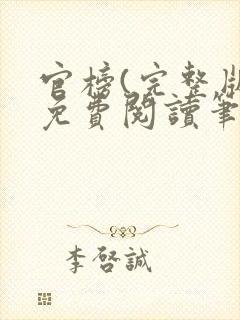 官榜(完整版
免費閱讀筆
李啓誠